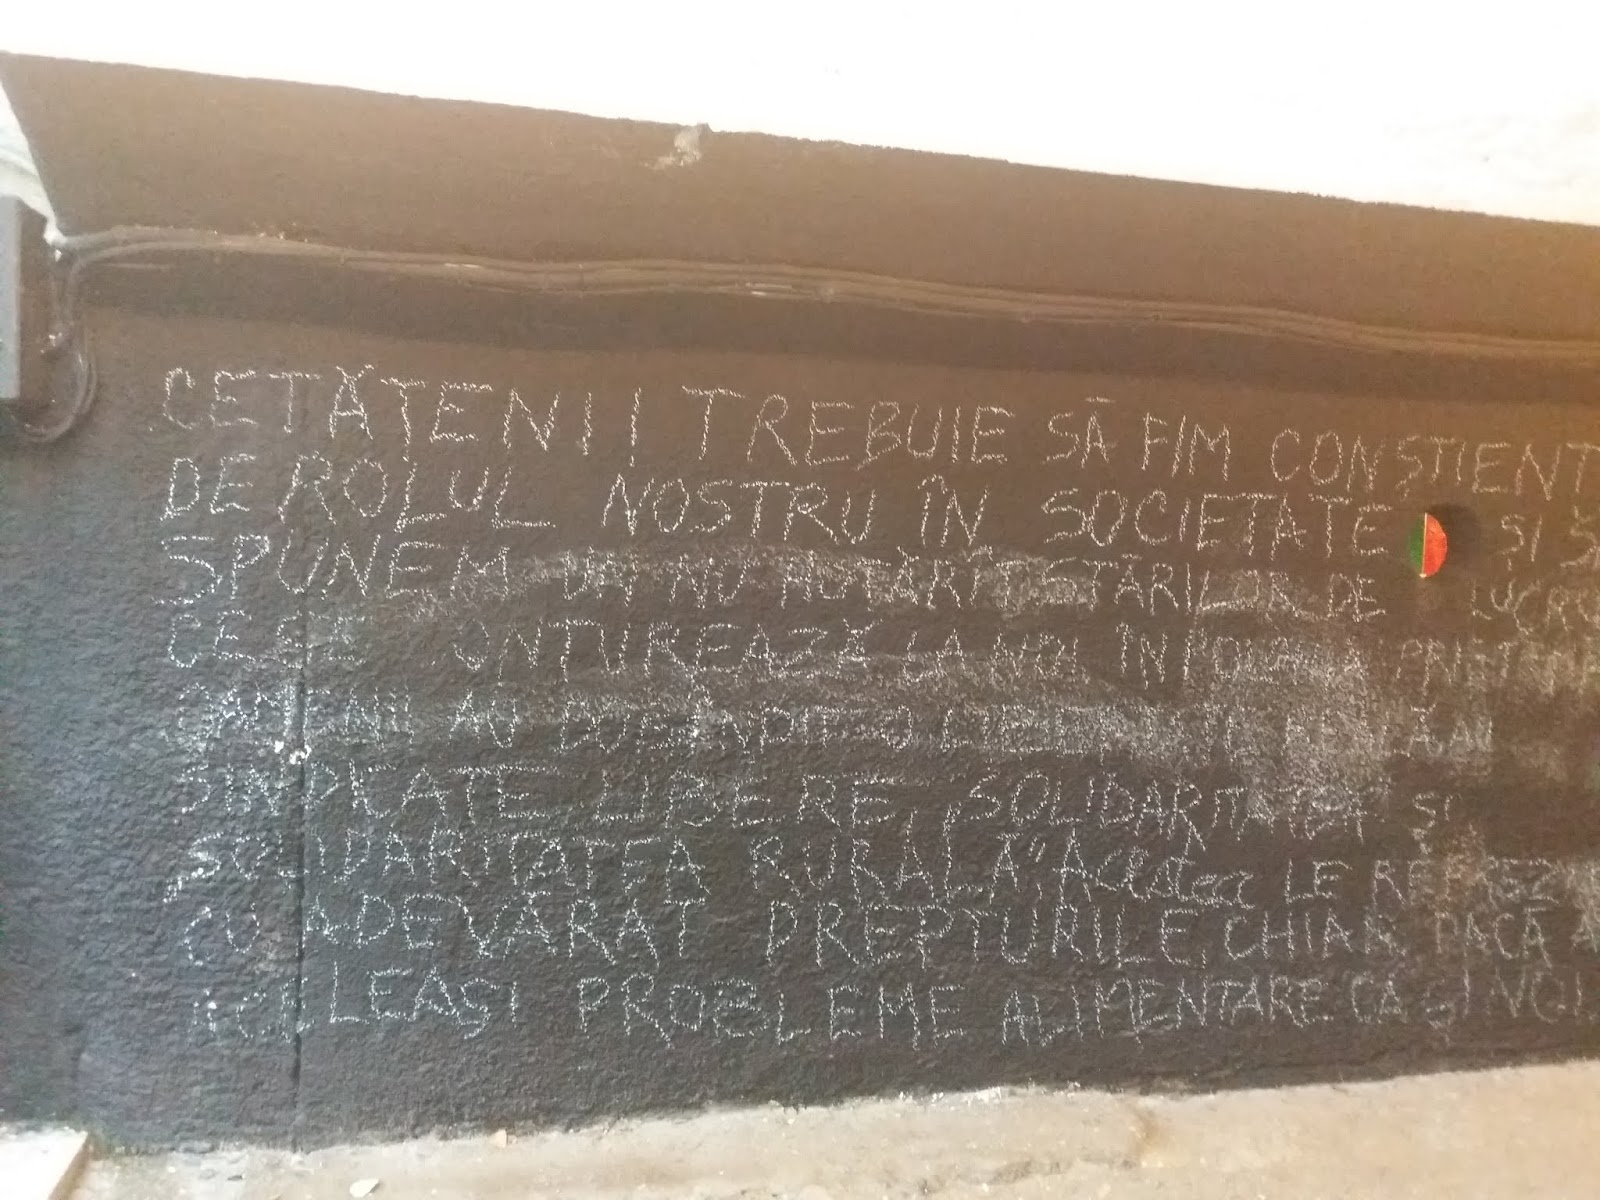 CETĂȚENII TREBUIE SĂ FIM CONȘTIENȚ
DE ROLUL NOSTRU ÎN SOCIETATE ȘI S
SPUNEM DA NU HOTĂRÎT STĂRILOR DE LUCRU
CE SE CONTUREAZĂ LA NOI ÎN
OAMENII AU DOUĂ
SINDICATE LIBERE, SOLIDARITATEA ȘI
SOLIDARITATEA RURALĂ" Acestea LE REPREZ
CU ADEVĂRAT DREPTURILE, CHIAR DACĂ A
ACELEAȘI PROBLEME ALIMENTARE CA ȘI NOI